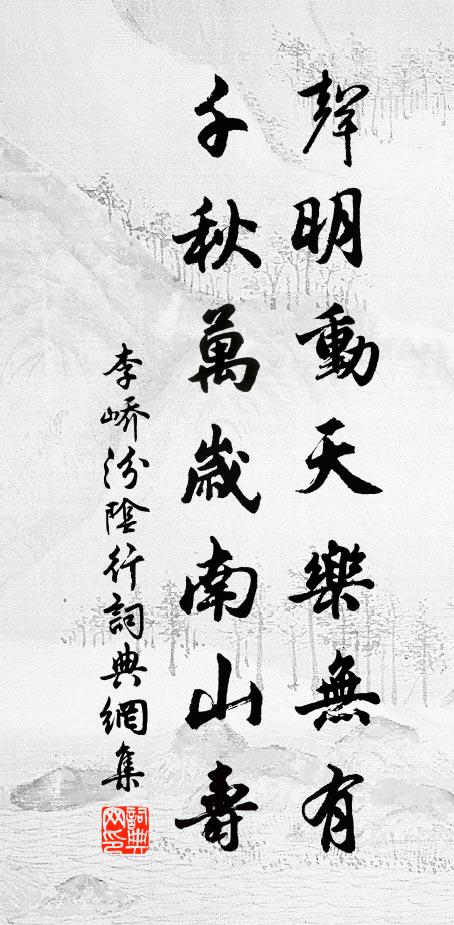 聲明動天樂無有
千秋萬歲南山壽
李嶠汾陰行詞典網集
詞典网印